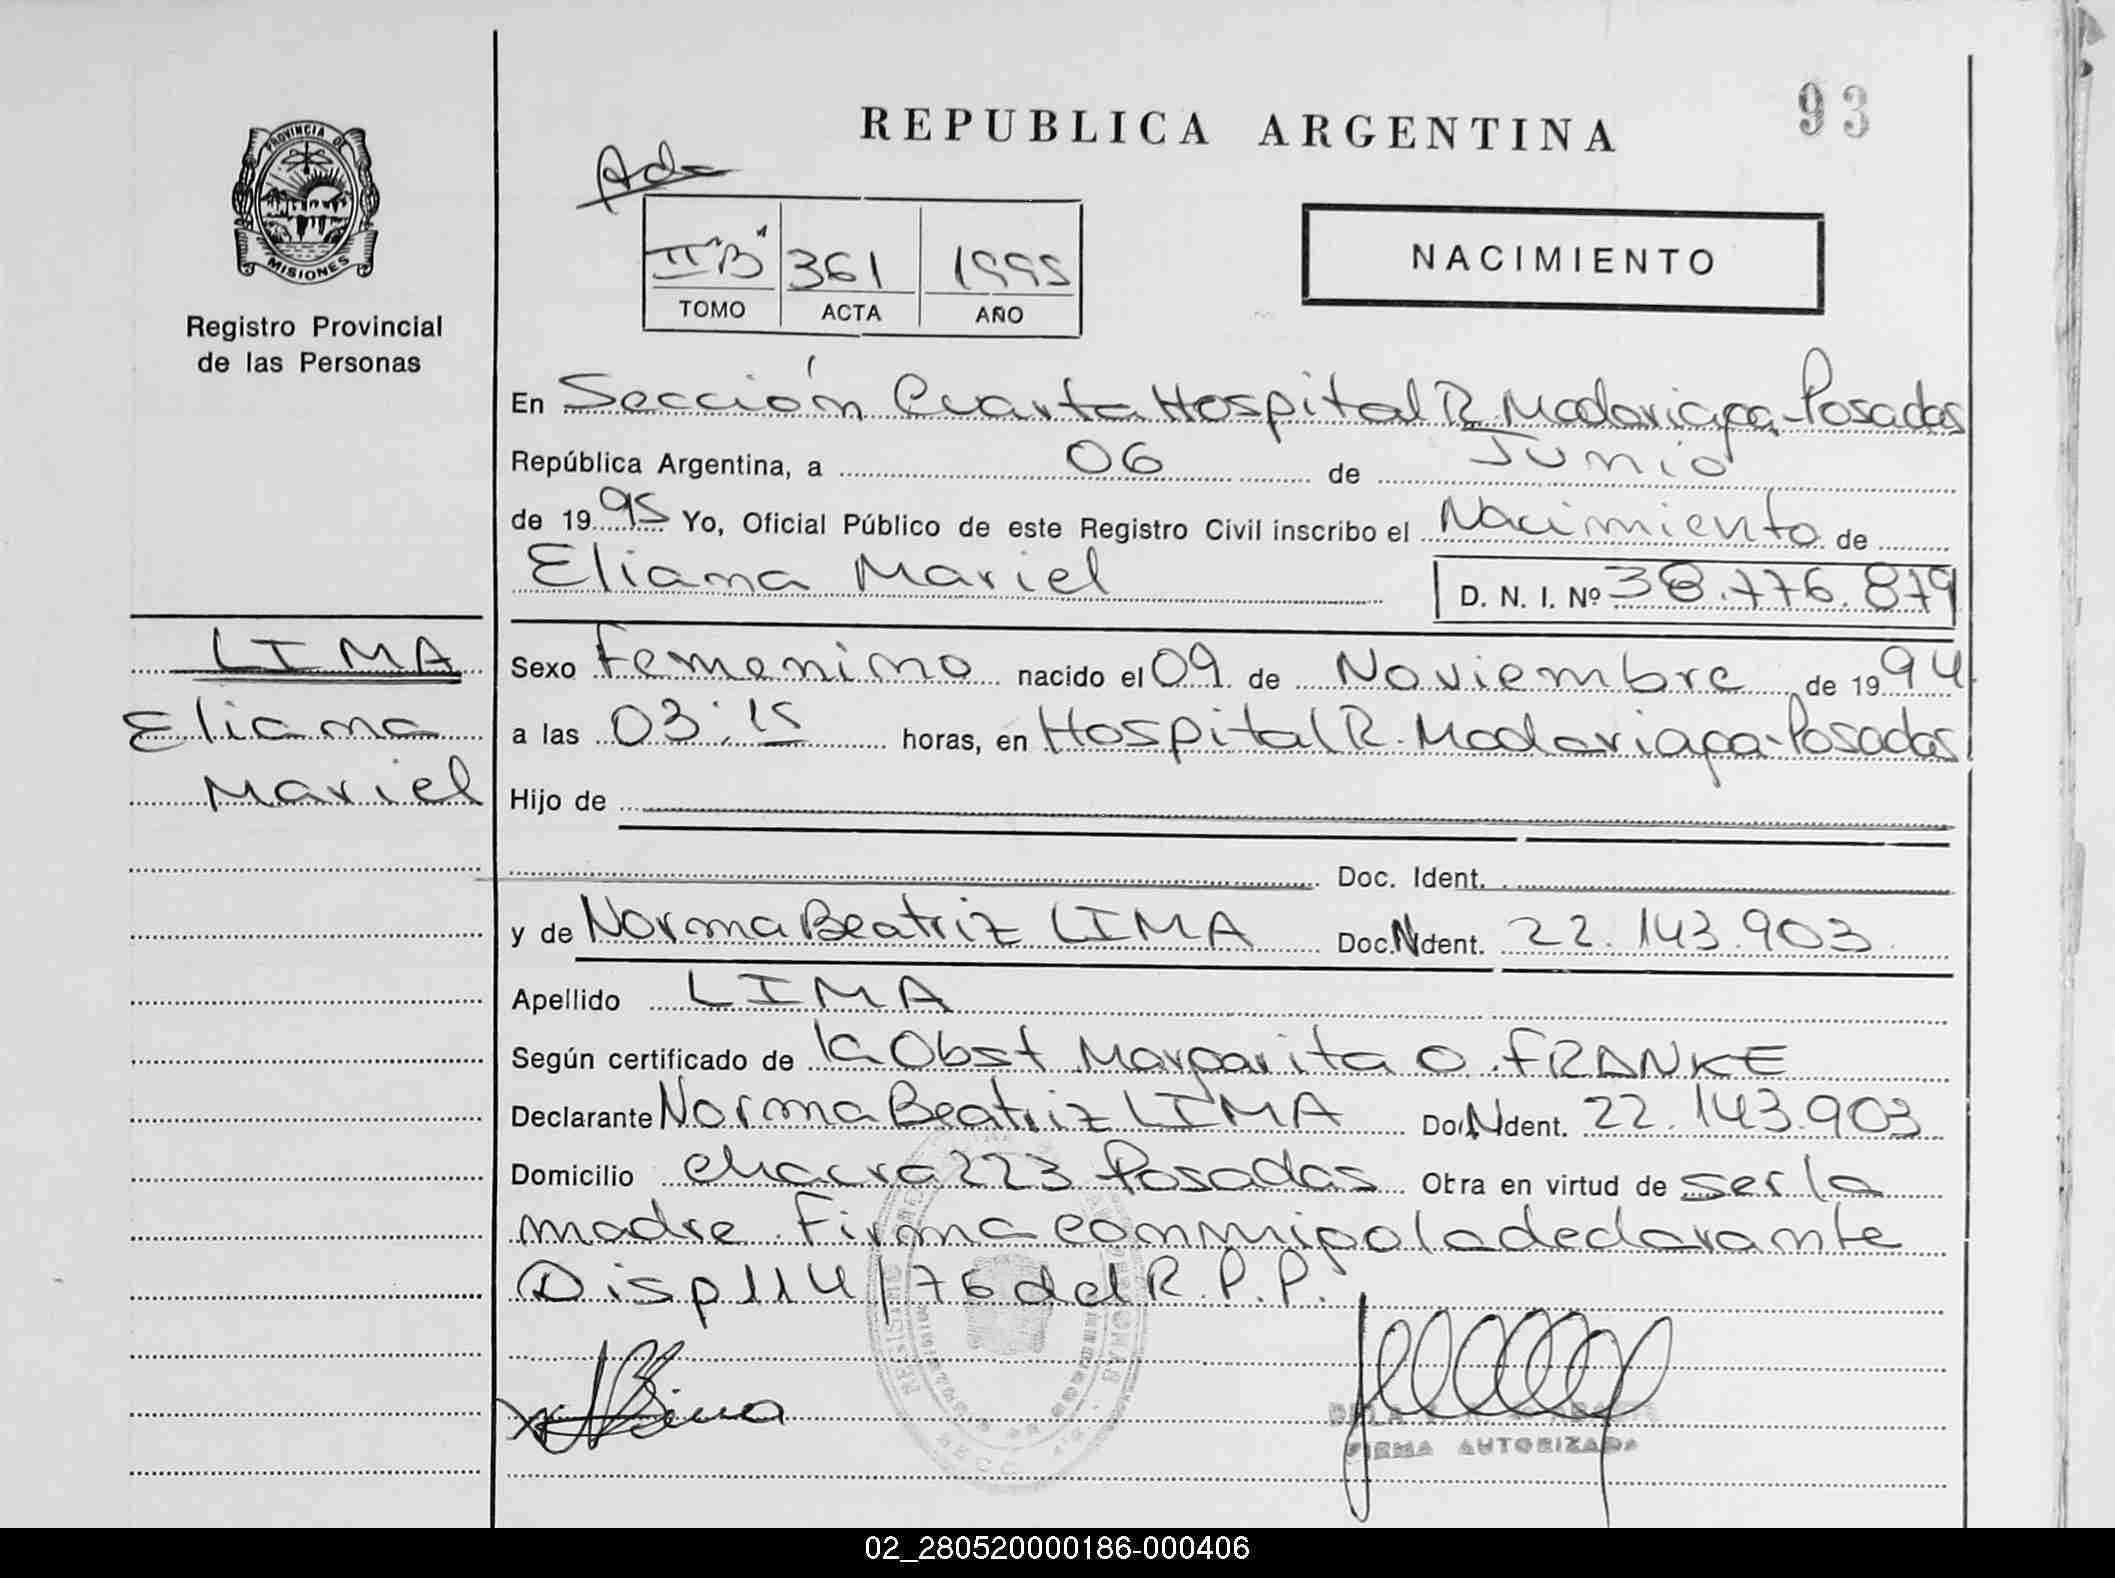 93
REPUBLICA ARGENTINA
PROVINCIA DE
MISIONES
Registro Provincial
de las Personas
II "B" 361 1995
TOMO ACTA AÑO
NACIMIENTO
En Sección Cuarta Hospital R. Madariaga-Posadas
República Argentina, a 06 de Junio
de 1995 Yo, Oficial Público de este Registro Civil inscribo el Nacimiento de
Eliana Mariel D. N. I. Nº 38.776.879
LIMA
Eliana
Mariel
Sexo Femenino nacido el 09 de Noviembre de 1994
a las 03:15 horas, en Hospital R. Madariaga-Posadas
Hijo de
Doc. Ident.
y de Norma Beatriz LIMA Doc. Ndent. 22.143.903
Apellido LIMA
Según certificado de la Obst Margarita O. FRANKE
Declarante Norma Beatriz LIMA Doc. Ndent. 22.143.903
Domicilio chacra 223 Posadas Otra en virtud de ser la
madre. Firma conmigo la declarante
Disp 114/76 del R.P.P.
FIRMA AUTORIZADA
02_280520000186-000406